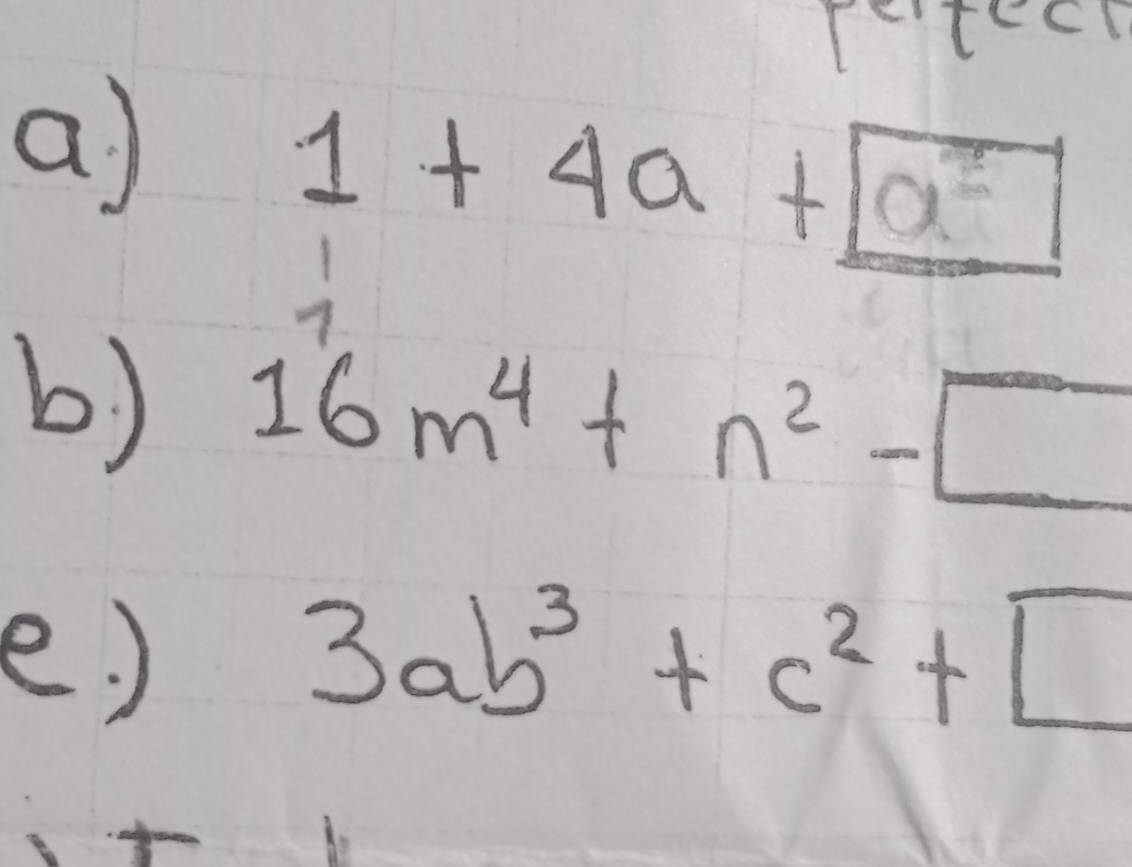 perfect
a.) 1 + 4a + a²
1
b.) 16m⁴ + n² -
e.) 3ab³ + c² +